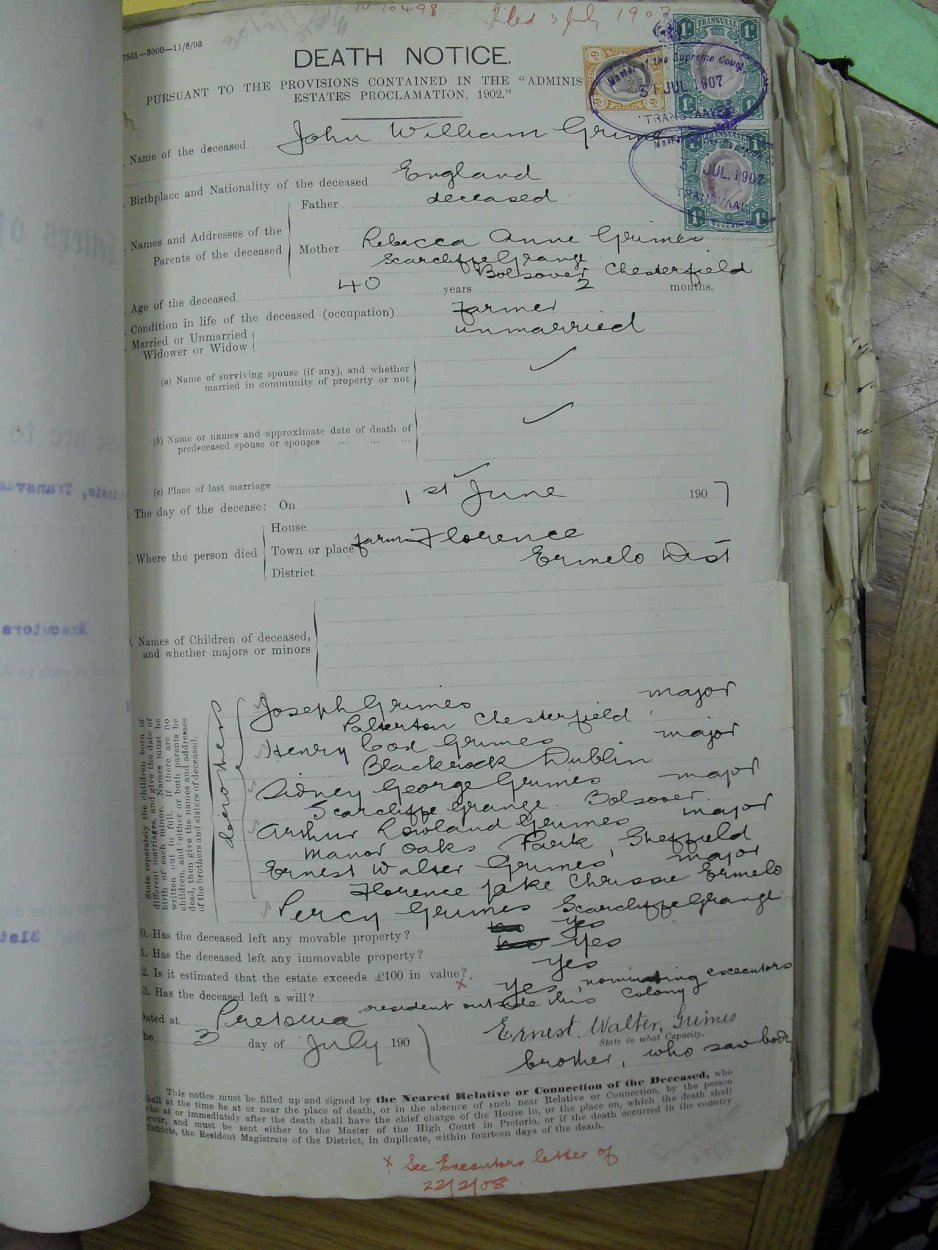 No 10498. Filed 3 July 1907
7561—3000—11/8/03
DEATH NOTICE.
PURSUANT TO THE PROVISIONS CONTAINED IN THE "ADMINIS
ESTATES PROCLAMATION, 1902."
TRANSVAAL
Master of the Supreme Court
JUL 1907
TRANSVAAL
TRANSVAAL
JUL. 1907
TRANSVAAL
REVENUE
Name of the deceased John William Grimes
Birthplace and Nationality of the deceased England
Names and Addresses of the Parents of the deceased
Father deceased
Mother Rebecca Anne Grimes
Scarcliffe Grange
Bolsover Chesterfield
Age of the deceased 40 years 2 months.
Condition in life of the deceased (occupation) farmer
Married or Unmarried
Widower or Widow unmarried
(a) Name of surviving spouse (if any), and whether
married in community of property or not ✓
(b) Name or names and approximate date of death of
predeceased spouse or spouses ... ... ... ✓
(c) Place of last marriage ✓
The day of the decease: On 1st June 1907
Where the person died
House
Town or place farm Florence
District Ermelo Dist
Names of Children of deceased,
and whether majors or minors
State separately the children born of
different marriages, and give the date of
birth of each minor. Names must be
written out in full. If there are no
children, and either or both parents be
dead, then give the names and addresses
of the brothers and sisters of deceased.
brothers
Joseph Grimes major
Palterton Chesterfield
Henry Cox Grimes major
Blackrock Dublin
Sidney George Grimes major
Scarcliffe Grange. Bolsover
Arthur Rowland Grimes major
Manor Oaks Park, Sheffield
Ernest Walter Grimes major
Florence Lake Chrissie Ermelo
Percy Grimes Scarcliffe Grange
0. Has the deceased left any movable property? no yes
1. Has the deceased left any immovable property? no yes
2. Is it estimated that the estate exceeds £100 in value? yes
3. Has the deceased left a will? × yes, nominating executors
resident outside this Colony
Dated at Pretoria
the 3 day of July 1907
Ernest Walter Grimes
State in what Capacity.
brother, who saw body
This notice must be filled up and signed by the Nearest Relative or Connection of the Deceased, who
shall at the time be at or near the place of death, or in the absence of such near Relative or Connection, by the person
who at or immediately after the death shall have the chief charge of the House in, or the place on, which the death shall
occur, and must be sent either to the Master of the High Court in Pretoria, or if the death occurred in the country
districts, the Resident Magistrate of the District, in duplicate, within fourteen days of the death.
× See Executors letter of
22/2/08.